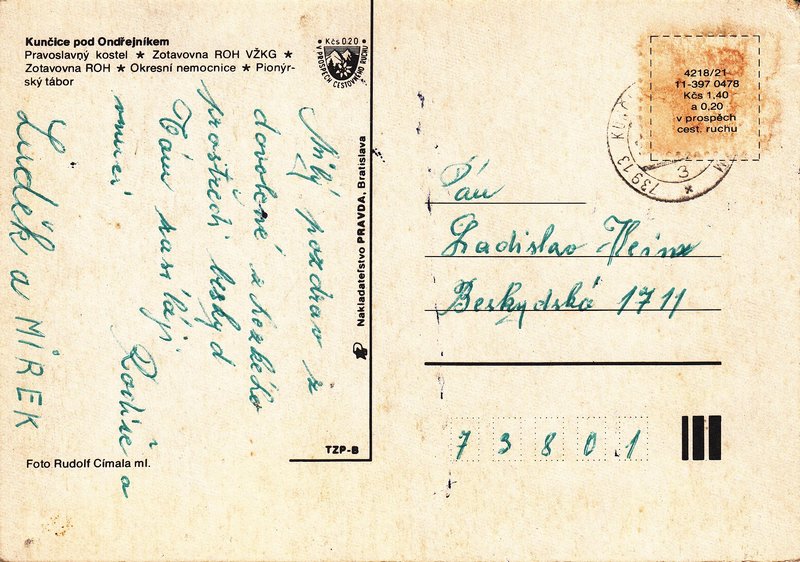 Kunčice pod Ondřejníkem
Pravoslavný kostel ★ Zotavovna ROH VŽKG ★
Zotavovna ROH ★ Okresní nemocnice ★ Pionýr-
ský tábor
Kčs 0.20
V PROSPĚCH CESTOVNÉHO RUCHU
Milý pozdrav z
dovolené z hezkého
prostředí beskyd
Vám zasílají
Rodiče a
Luděk a MIREK
Foto Rudolf Címala ml.
TZP-B
Nakladateľstvo PRAVDA, Bratislava
4218/21
11-397 0478
Kčs 1,40
a 0,20
v prospěch
cest. ruchu
739 13
3
Pán
Ladislav
Beskydská 1711
73801